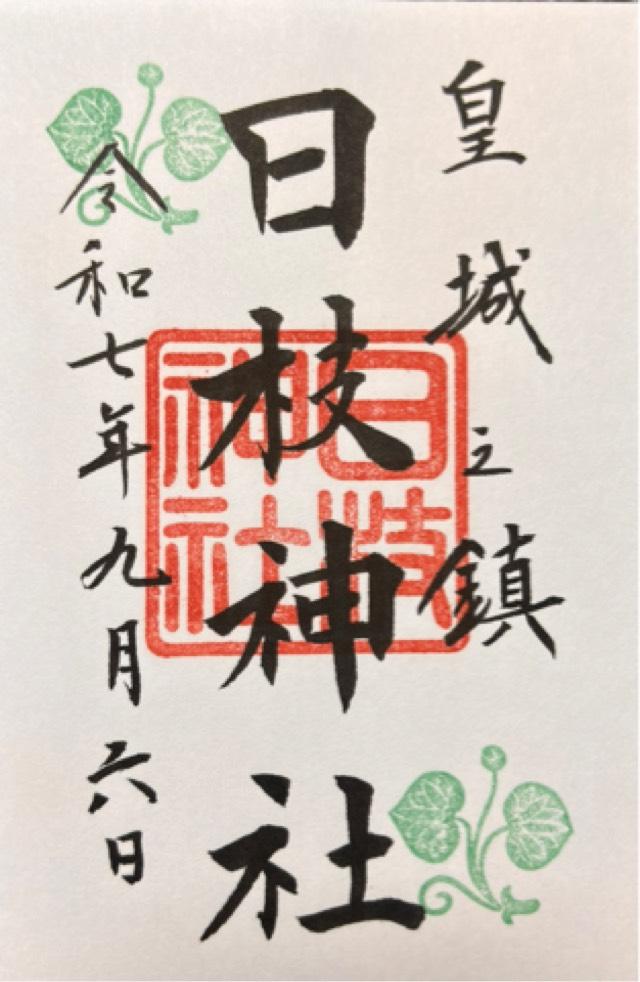 皇城之鎮
日枝神社
日枝神社
令和七年九月六日